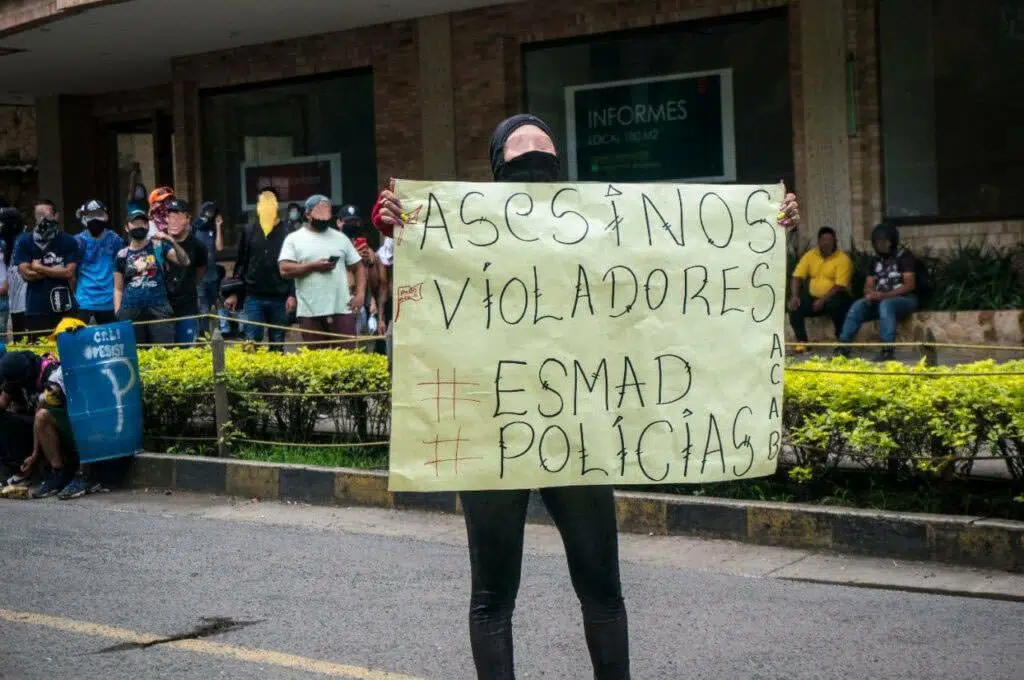 INFORMES
LOCAL 180 M2
ASESINOS
VIOLADORES
# ESMAD
# POLICÍAS
ACAB
RESIST
P